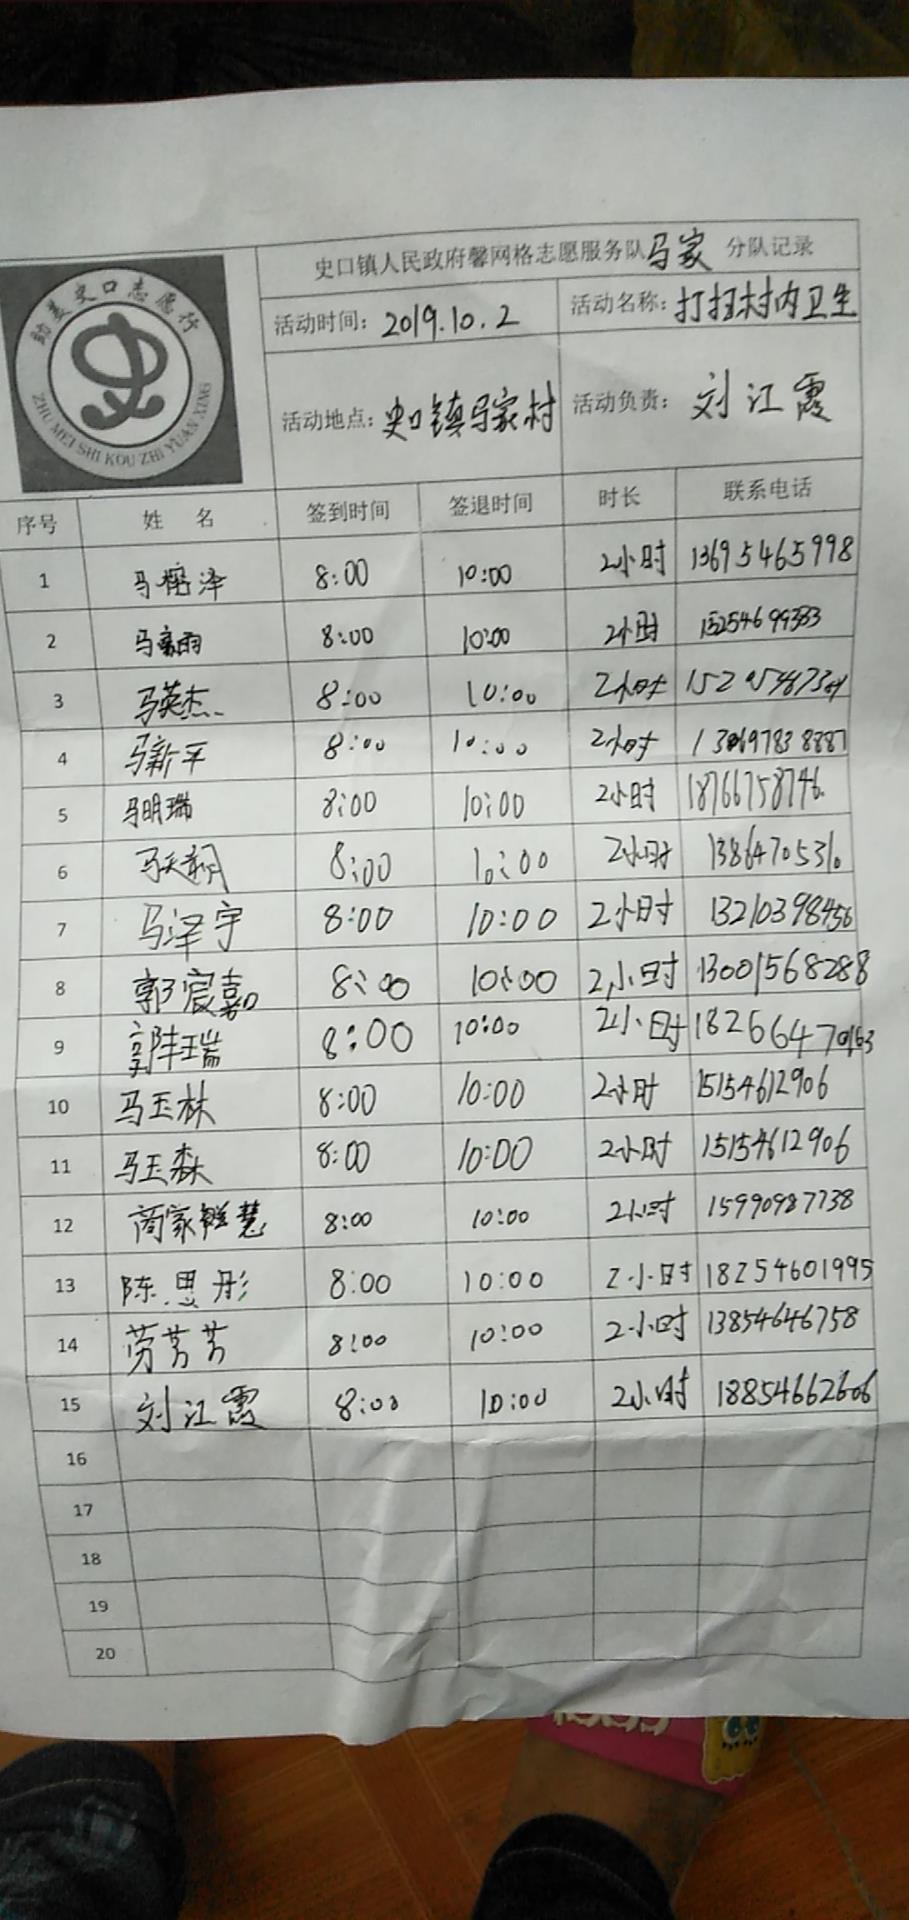 史口镇人民政府馨网格志愿服务队马家 分队记录
活动时间: 2019.10.2 活动名称: 打扫村内卫生
活动地点: 史口镇马家村 活动负责: 刘江霞
美史口志愿行
ZHU MEI SHI KOU ZHI YUAN XING
序号 姓 名 签到时间 签退时间 时长 联系电话
1 马 泽 8:00 10:00 2小时 13695465998
2 马 雨 8:00 10:00 2小时 15254699333
3 马英杰 8:00 10:00 2小时
4 马新平 8:00 10:00 2小时
5 马明瑞 8:00 10:00 2小时 18766758746
6 马天 8:00 10:00 2小时 1386470531
7 马泽宇 8:00 10:00 2小时 13210398456
8 郭宸嘉 8:00 10:00 2小时 13001568288
9 瑞 8:00 10:00 2小时 18266470163
10 马玉林 8:00 10:00 2小时 15154612906
11 马玉森 8:00 10:00 2小时 15154612906
12 商家 慧 8:00 10:00 2小时 15990987738
13 陈思彤 8:00 10:00 2小时 18254601995
14 劳芳芳 8:00 10:00 2小时 13854646758
15 刘江霞 8:00 10:00 2小时 18854662606
16
17
18
19
20